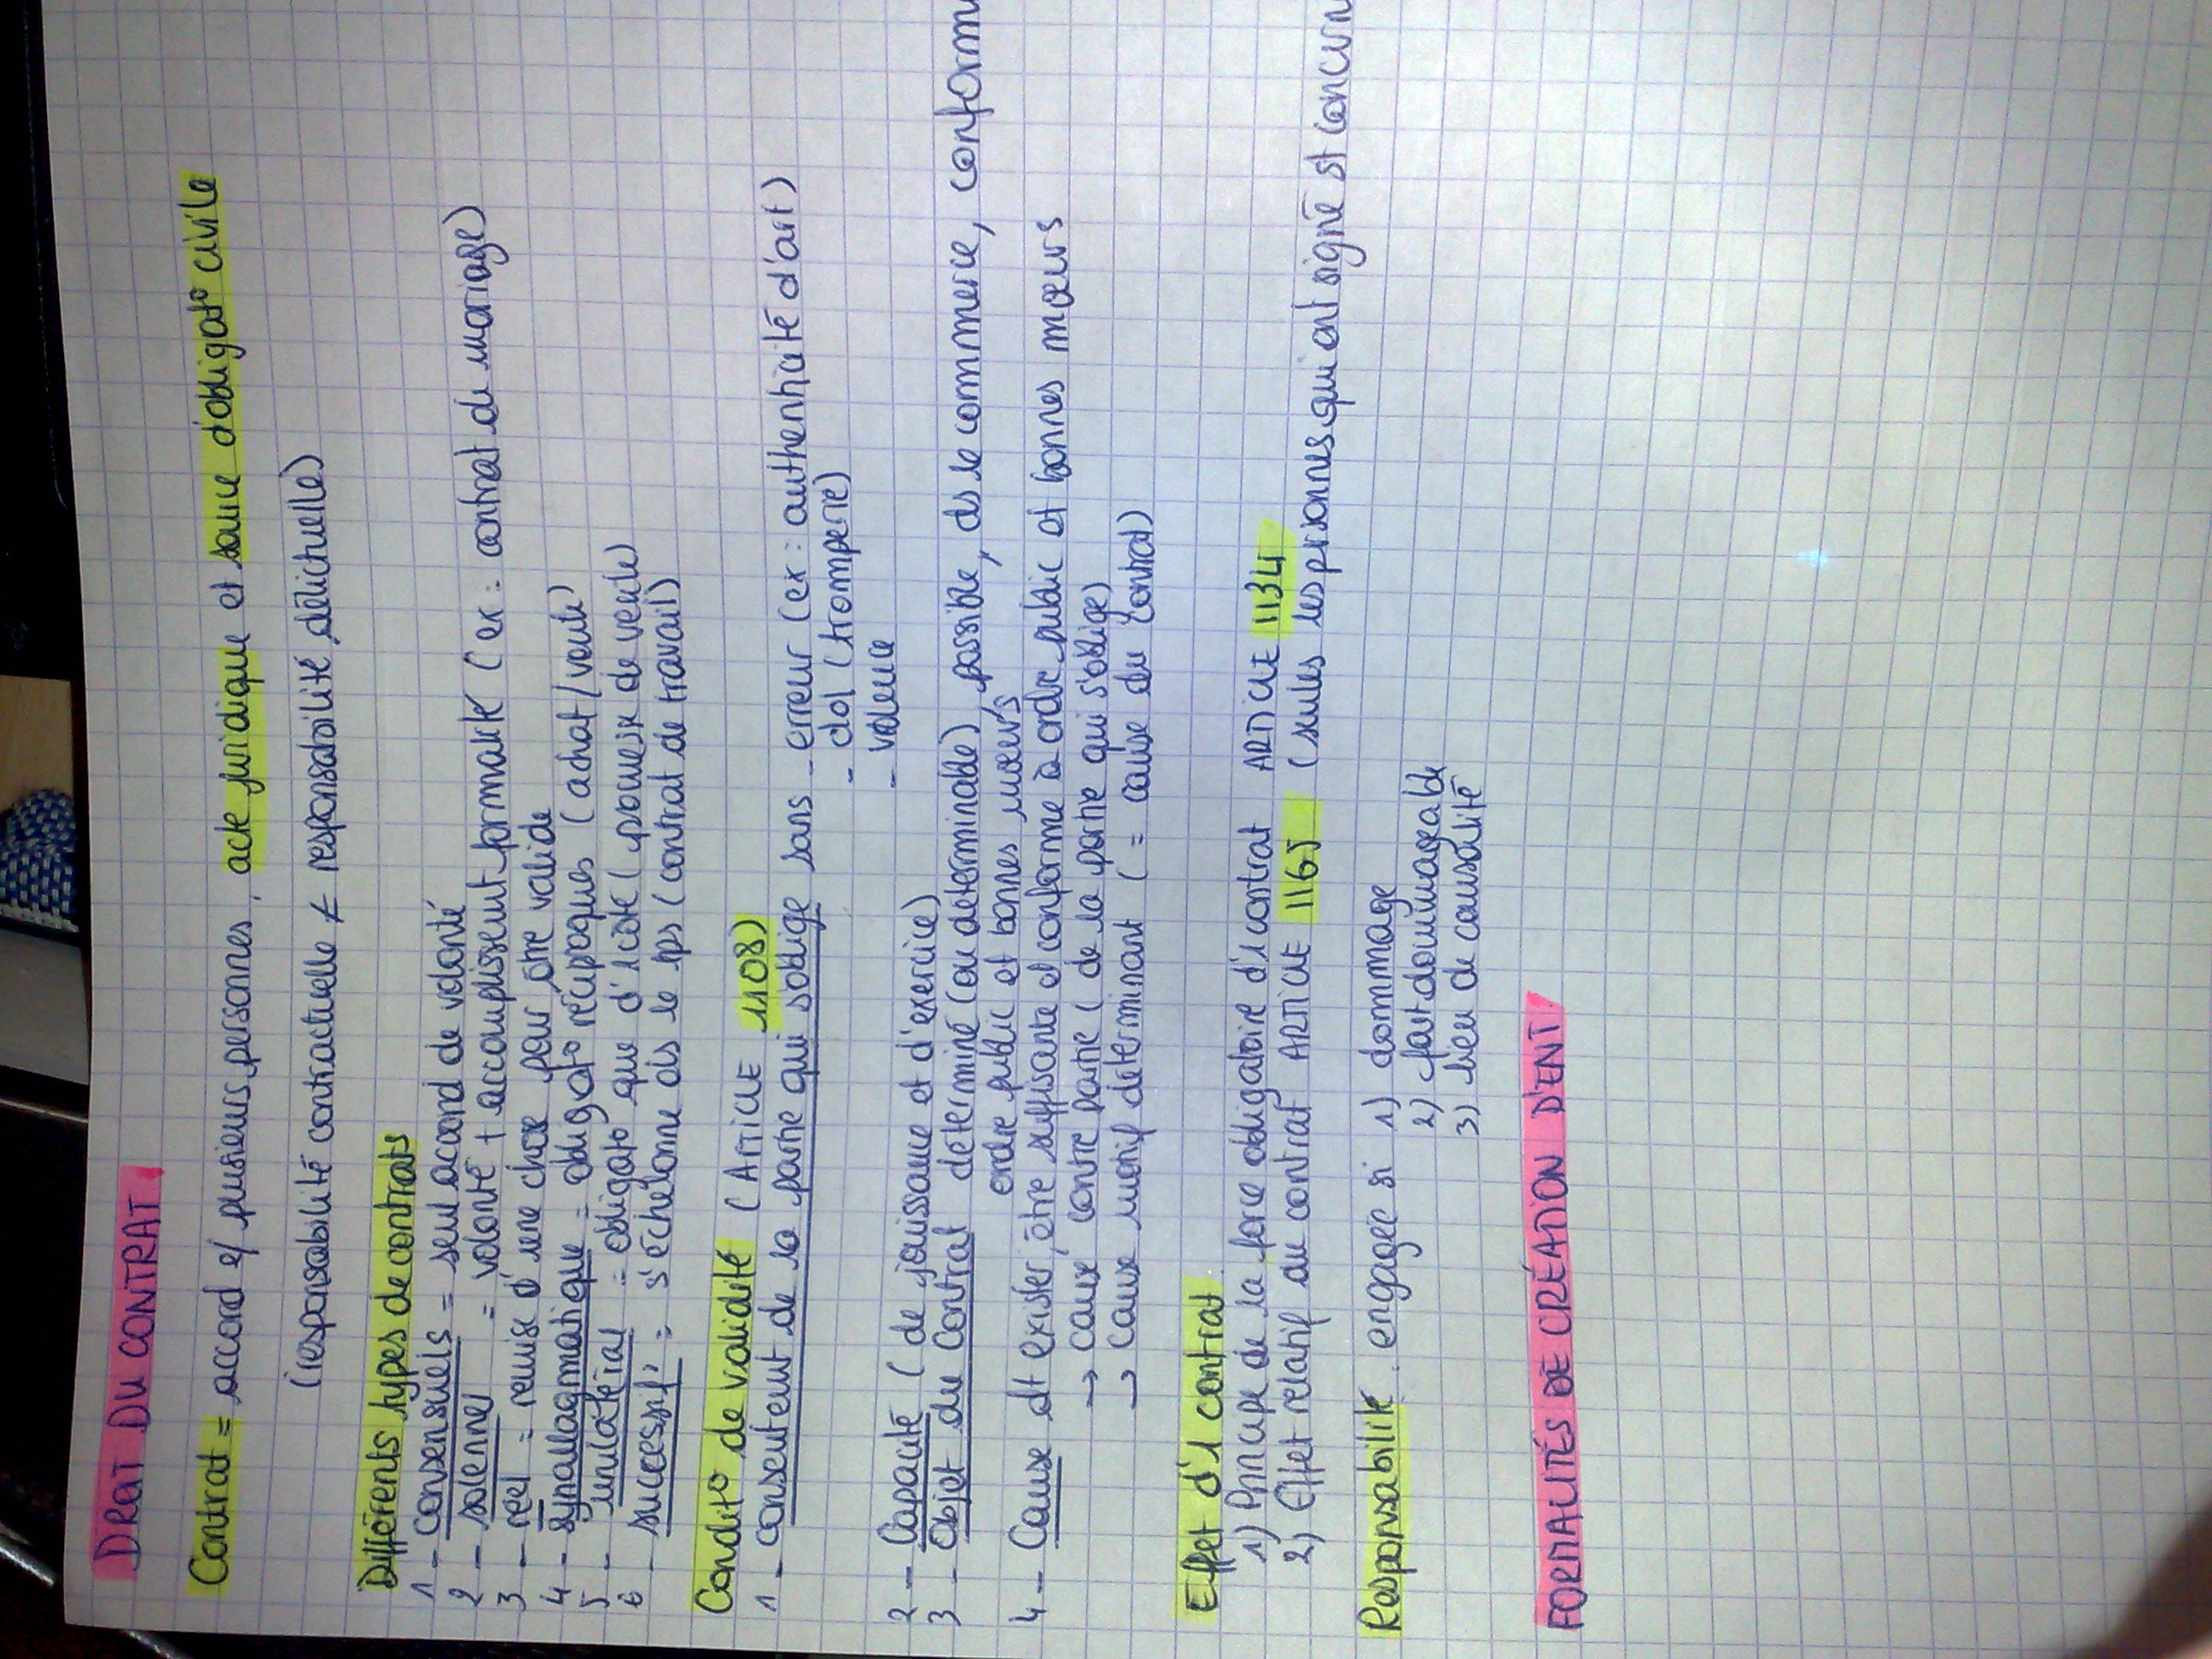 DROIT DU CONTRAT
Contrat = accord e/ plusieurs personnes, acte juridique et source d'obligato civile
(responsabilité contractuelle ≠ responsabilité délictuelle)
Différents types de contrats
1 - consensuels = seul accord de volonté
2 - solennel = volonté + accomplissent formalité (ex : contrat de mariage)
3 - réel = remise d'une chose pour être valide
4 - synallagmatique = obligato réciproques (achat/vente)
5 - unilatéral = obligato que d'1 côté (promesse de vente)
6 - successif : s'échelonne ds le tps (contrat de travail)
Conditio de validité (ARTICLE 1108)
1 - consentement de la partie qui s'oblige sans - erreur (ex : authenticité d'art)
- dol (tromperie)
- violence
2 - Capacité (de jouissance et d'exercice)
3 - Objet du contrat déterminé (ou déterminable), possible, ds le commerce, conform
ordre public et bonnes mœurs
4 - Cause dt exister, être suffisante et conforme à ordre public et bonnes mœurs
→ cause contre partie (de la partie qui s'oblige)
→ cause motif déterminant (= cause du contrat)
Effet d'1 contrat
1) Principe de la force obligatoire d'1 contrat ARTICLE 1134
2) Effet relatif au contrat ARTICLE 1165 (seules les personnes qui ont signé st concern
Responsabilité : engagée si 1) dommage
2) fait dommageable
3) lien de causalité
FORMALITÉS DE CRÉATION D'ENT